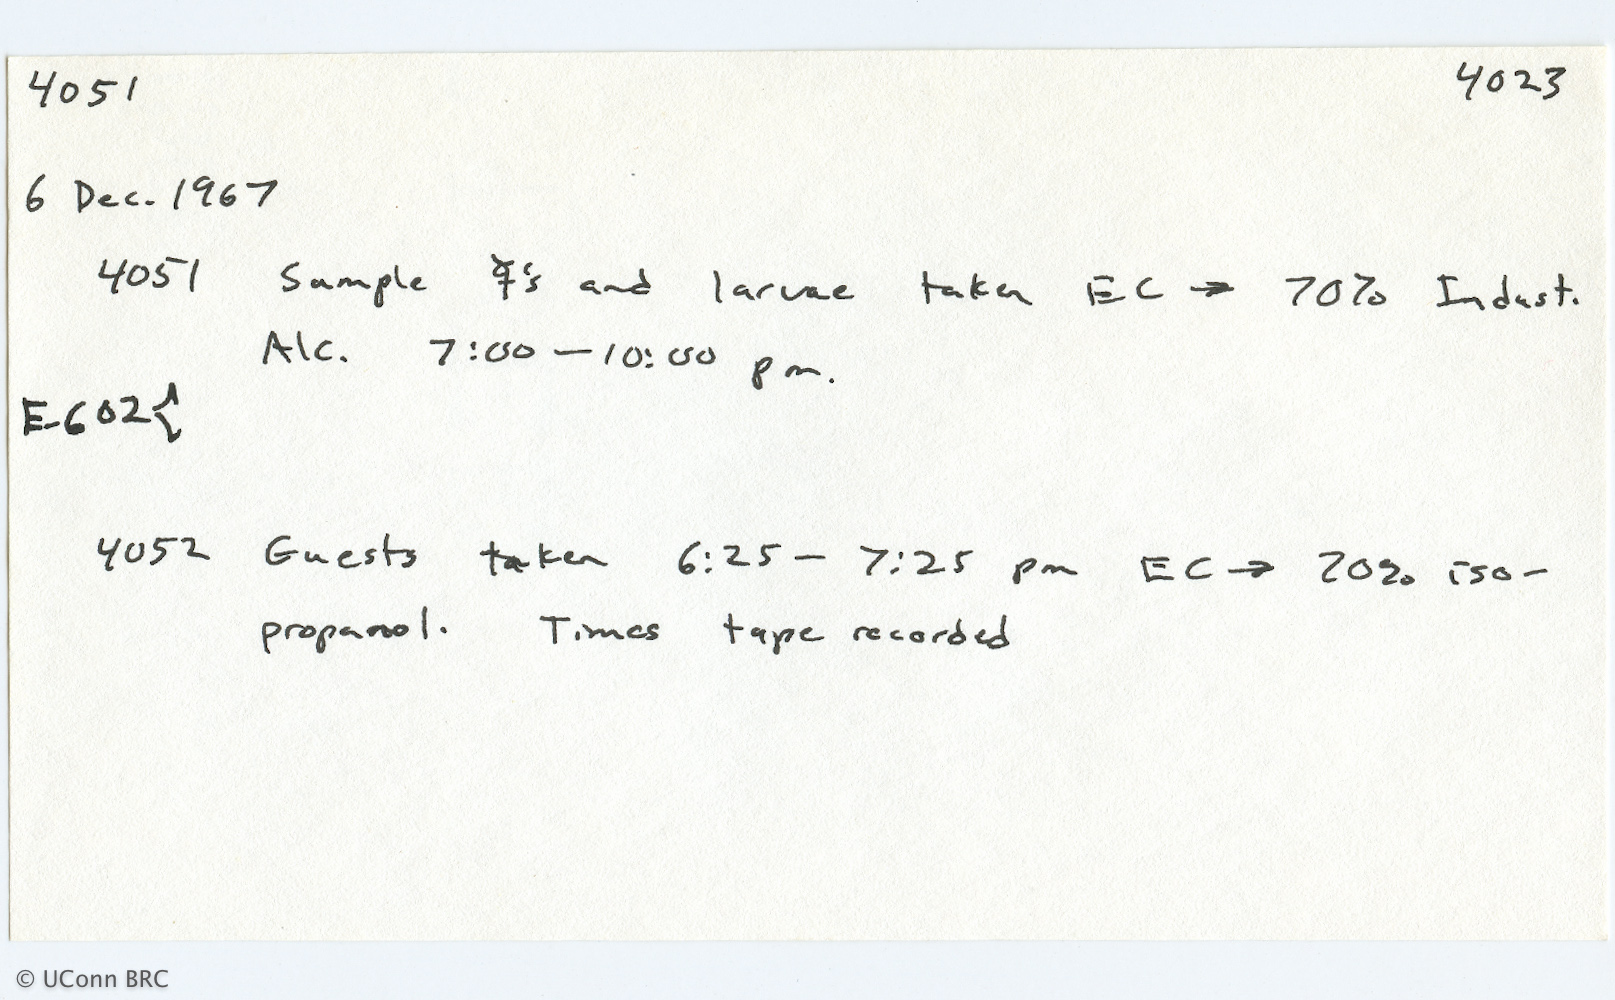 4051 4023
6 Dec. 1967
4051 Sample ☿'s and larvae taken EC → 70% Indust.
Alc. 7:00 — 10:00 pm.
E-602{
4052 Guests taken 6:25 — 7:25 pm EC → 70% iso-
propanol. Times tape recorded
© UConn BRC